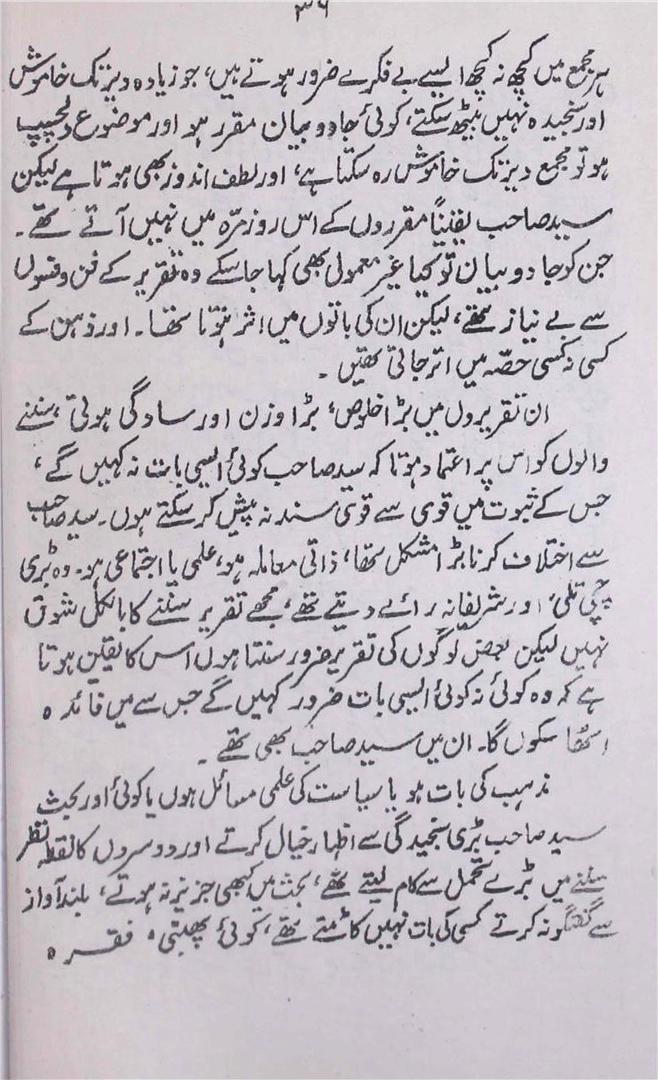 ۳۶
ہر مجمع میں کچھ نہ کچھ ایسے بے فکرے ضرور ہوتے ہیں، جو زیادہ دیر تک خاموش
اور سنجیدہ نہیں بیٹھ سکتے، کوئی جادو بیان مقرر ہو اور موضوع دلچسپ
ہو تو مجمع دیر تک خاموش رہ سکتا ہے، اور لطف اندوز بھی ہوتا ہے لیکن
سید صاحب یقیناً مقرروں کے اس روزمرّہ میں نہیں آتے تھے۔
جن کو جادو بیان تو کیا غیر معمولی بھی کہا جا سکے وہ تقریر کے فن و فسوں
سے بے نیاز تھے، لیکن ان کی باتوں میں اثر ہوتا تھا۔ اور ذہن کے
کسی نہ کسی حصّہ میں اتر جاتی تھیں۔
ان تقریروں میں بڑا خلوص، بڑا وزن اور سادگی ہوتی، سننے
والوں کو اس پر اعتماد ہوتا کہ سید صاحب کوئی ایسی بات نہ کہیں گے،
جس کے ثبوت میں قوی سے قوی سند نہ پیش کر سکتے ہوں۔ سید صاحب
سے اختلاف کرنا بڑا مشکل تھا، ذاتی معاملہ ہو، علمی یا اجتماعی ہو۔ وہ بڑی
جچی تلی، اور شریفانہ رائے دیتے تھے، مجھے تقریر سننے کا بالکل شوق
نہیں لیکن بعض لوگوں کی تقریر ضرور سنتا ہوں اس کا یقین ہوتا
ہے کہ وہ کوئی نہ کوئی ایسی بات ضرور کہیں گے جس سے میں فائدہ
اٹھا سکوں گا۔ ان میں سید صاحب بھی تھے۔
مذہب کی بات ہو یا سیاست کی علمی مسائل ہوں یا کوئی اور بحث
سید صاحب بڑی سنجیدگی سے اظہار خیال کرتے اور دوسروں کا نقطہ نظر
سننے میں بڑے تحمل سے کام لیتے تھے، بحث میں کبھی جزبز نہ ہوتے، بلند آواز
سے گفتگو نہ کرتے کسی کی بات نہیں کاٹتے تھے، کوئی پھبتی، فقرہ